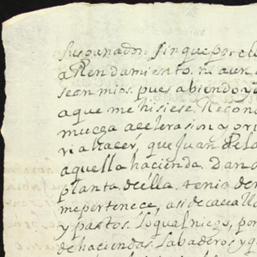 sus ganados sin que por el
a Rendamiento, ni aun
sean mios, pues abiendo
a que me hisiese Recono
muega aselera sin
ria hazer, que quando
aquella hacienda. Dan
planta de ella. tenia de
me pertenece, asi de cavalla
y pastos. lo qual niego, por
de haciendas labaderos y q